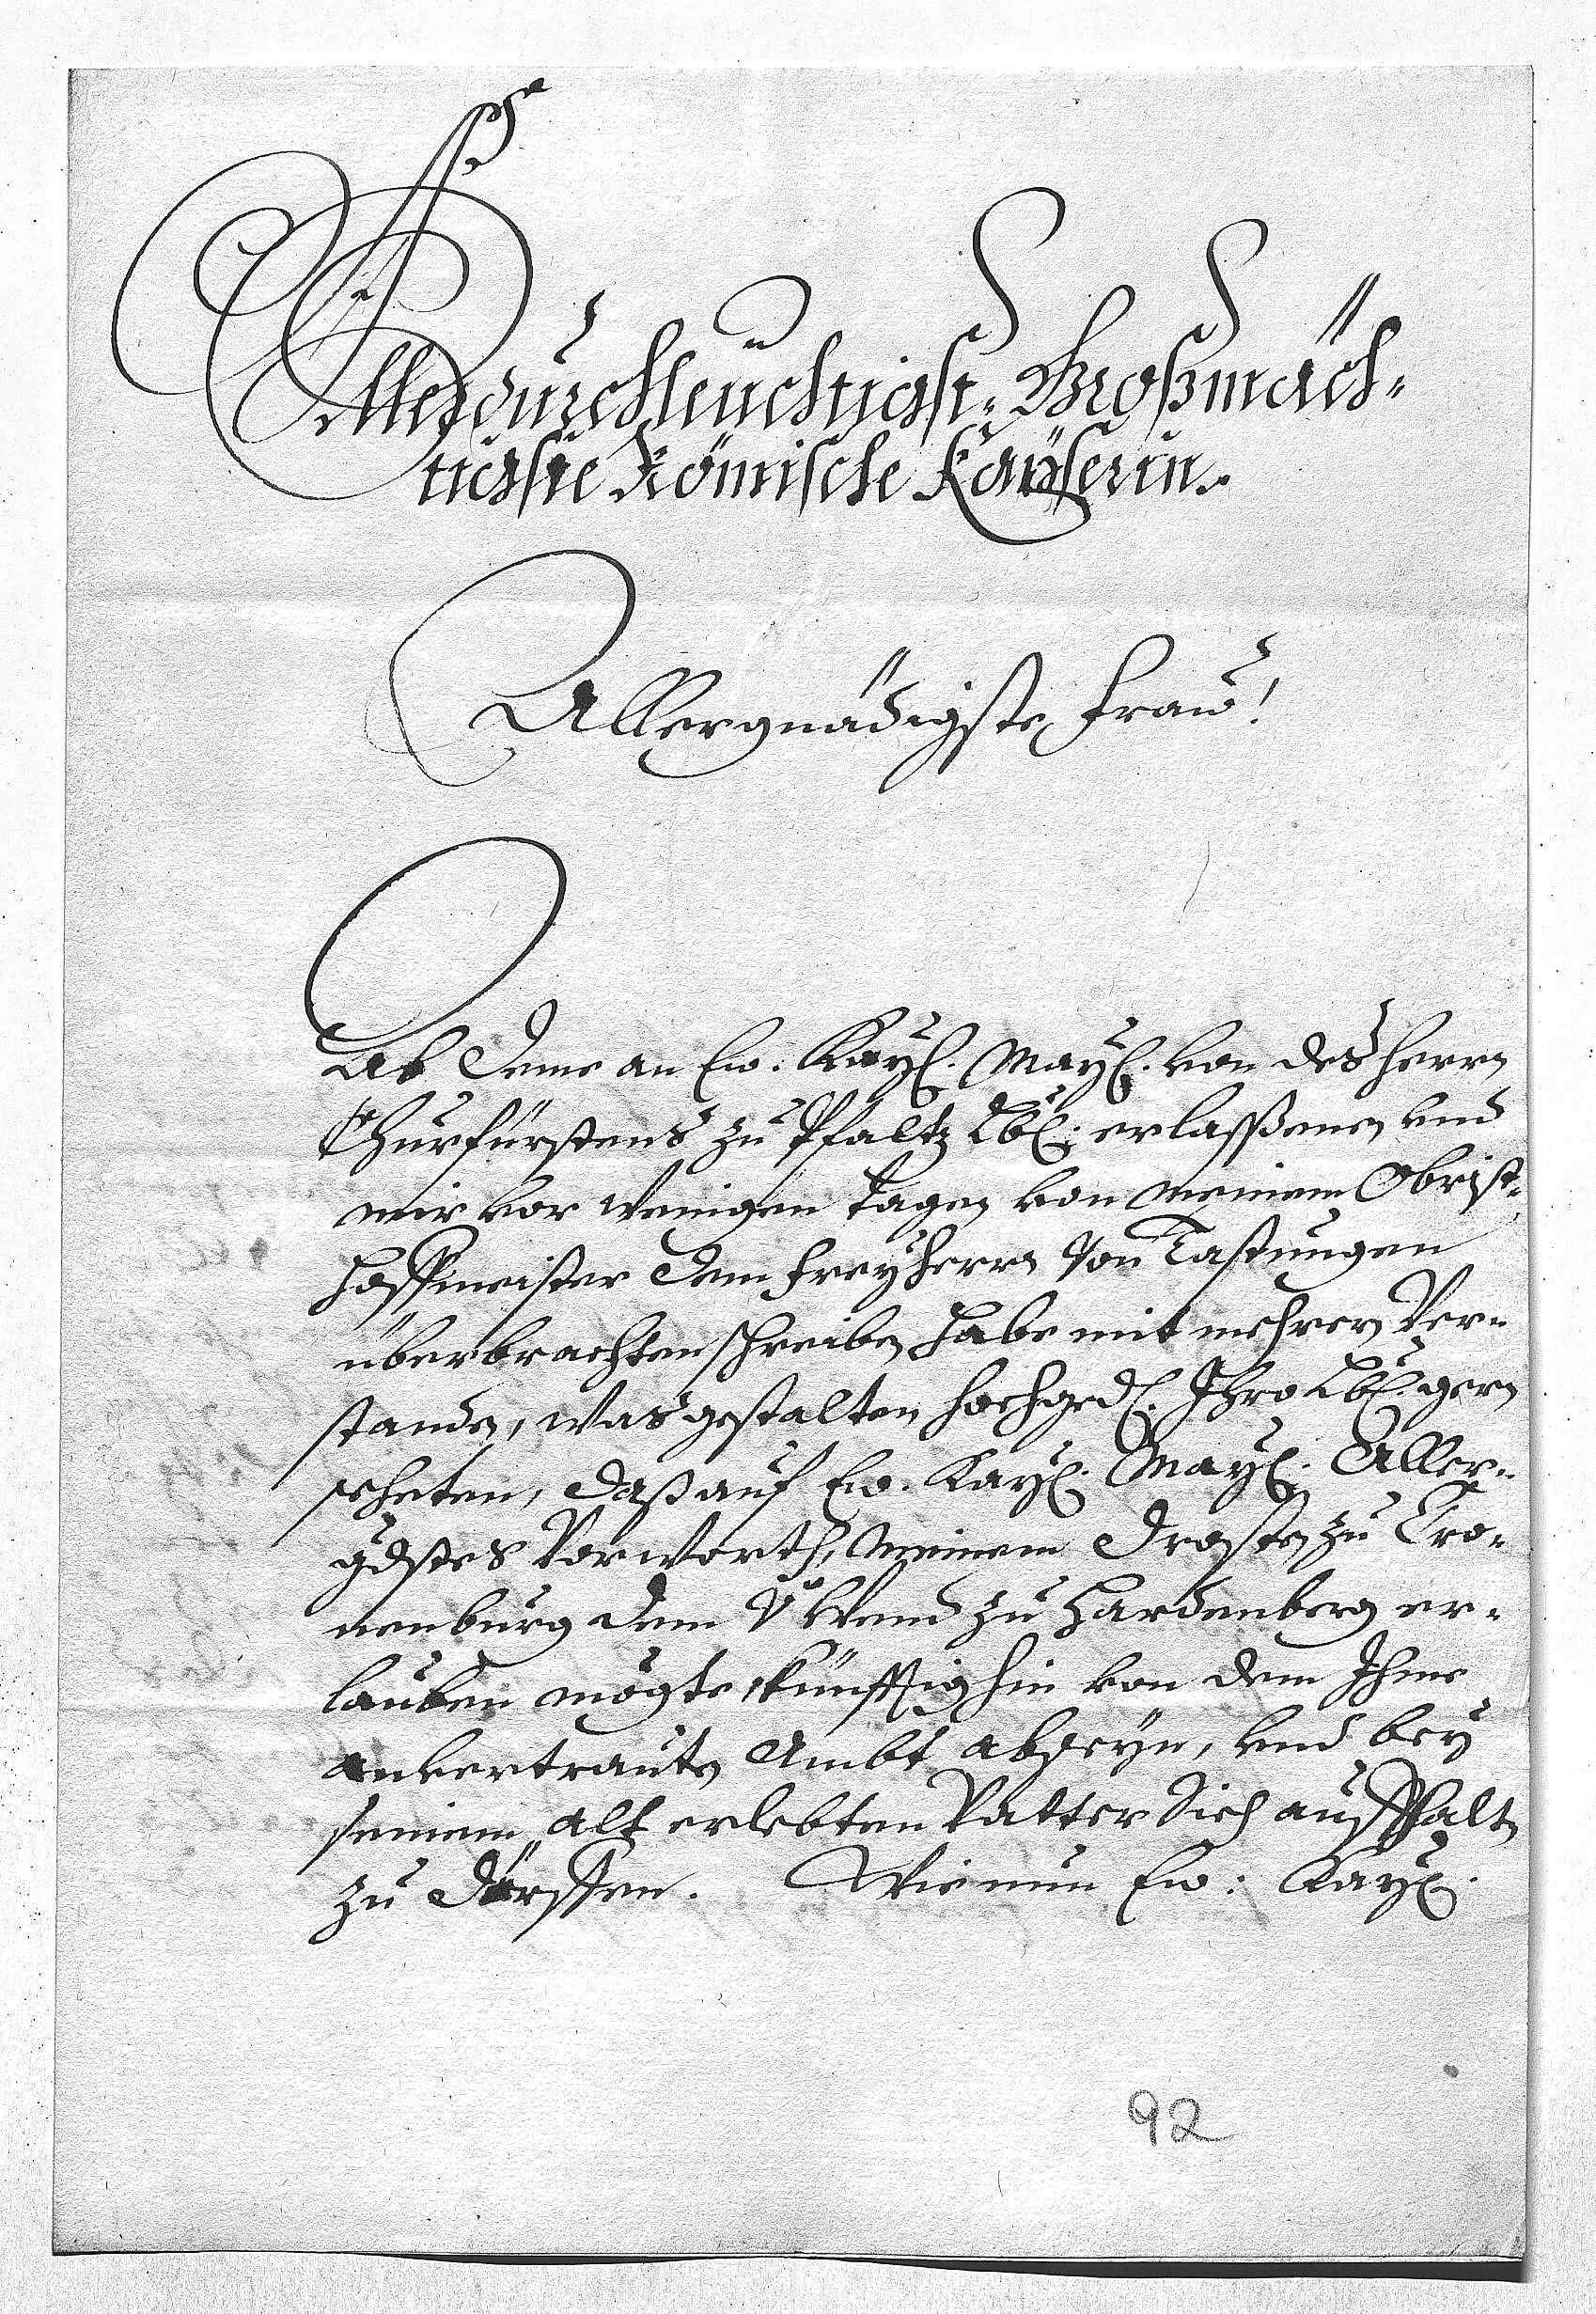 Allerdurchleuchtigst- Großmäch-
tigste Römische Kayserin.
Allergnädigste Fraw!
Ab deme an Ew: Kayl. Mayl. von des Herrn
Churfürstens zu Pfaltz Lbl: erlaßenen vnd
mir vor wenigen Tagen von meinem Obrist-
hoffmeister dem Freyherrn von Tastungen
überbrachten schreiben habe mit mehren Ver-
standen, was gestalten hochged. Ihro Lbl. gern
seheten, daß auf Ew. Kayl. Mayl. Aller-
gdstes Vorworth, meinem Drosten zu Cro-
nenburg dem V Wend zu Hardenberg er-
lauben mögte, künfftighin von dem Ihme
anvertrauten Ambt abseyn, vnd bey
seinem alt erlebten Vatter sich auffhalten
zu dörffen. Wie nun Ew: Kayl.
92